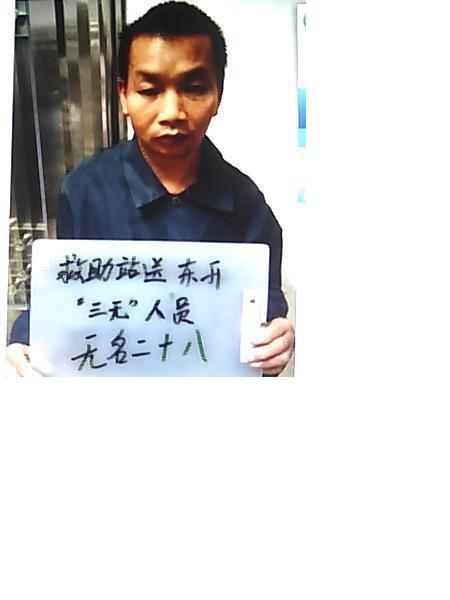 救助站送 东开
“三无”人员
无名二十八